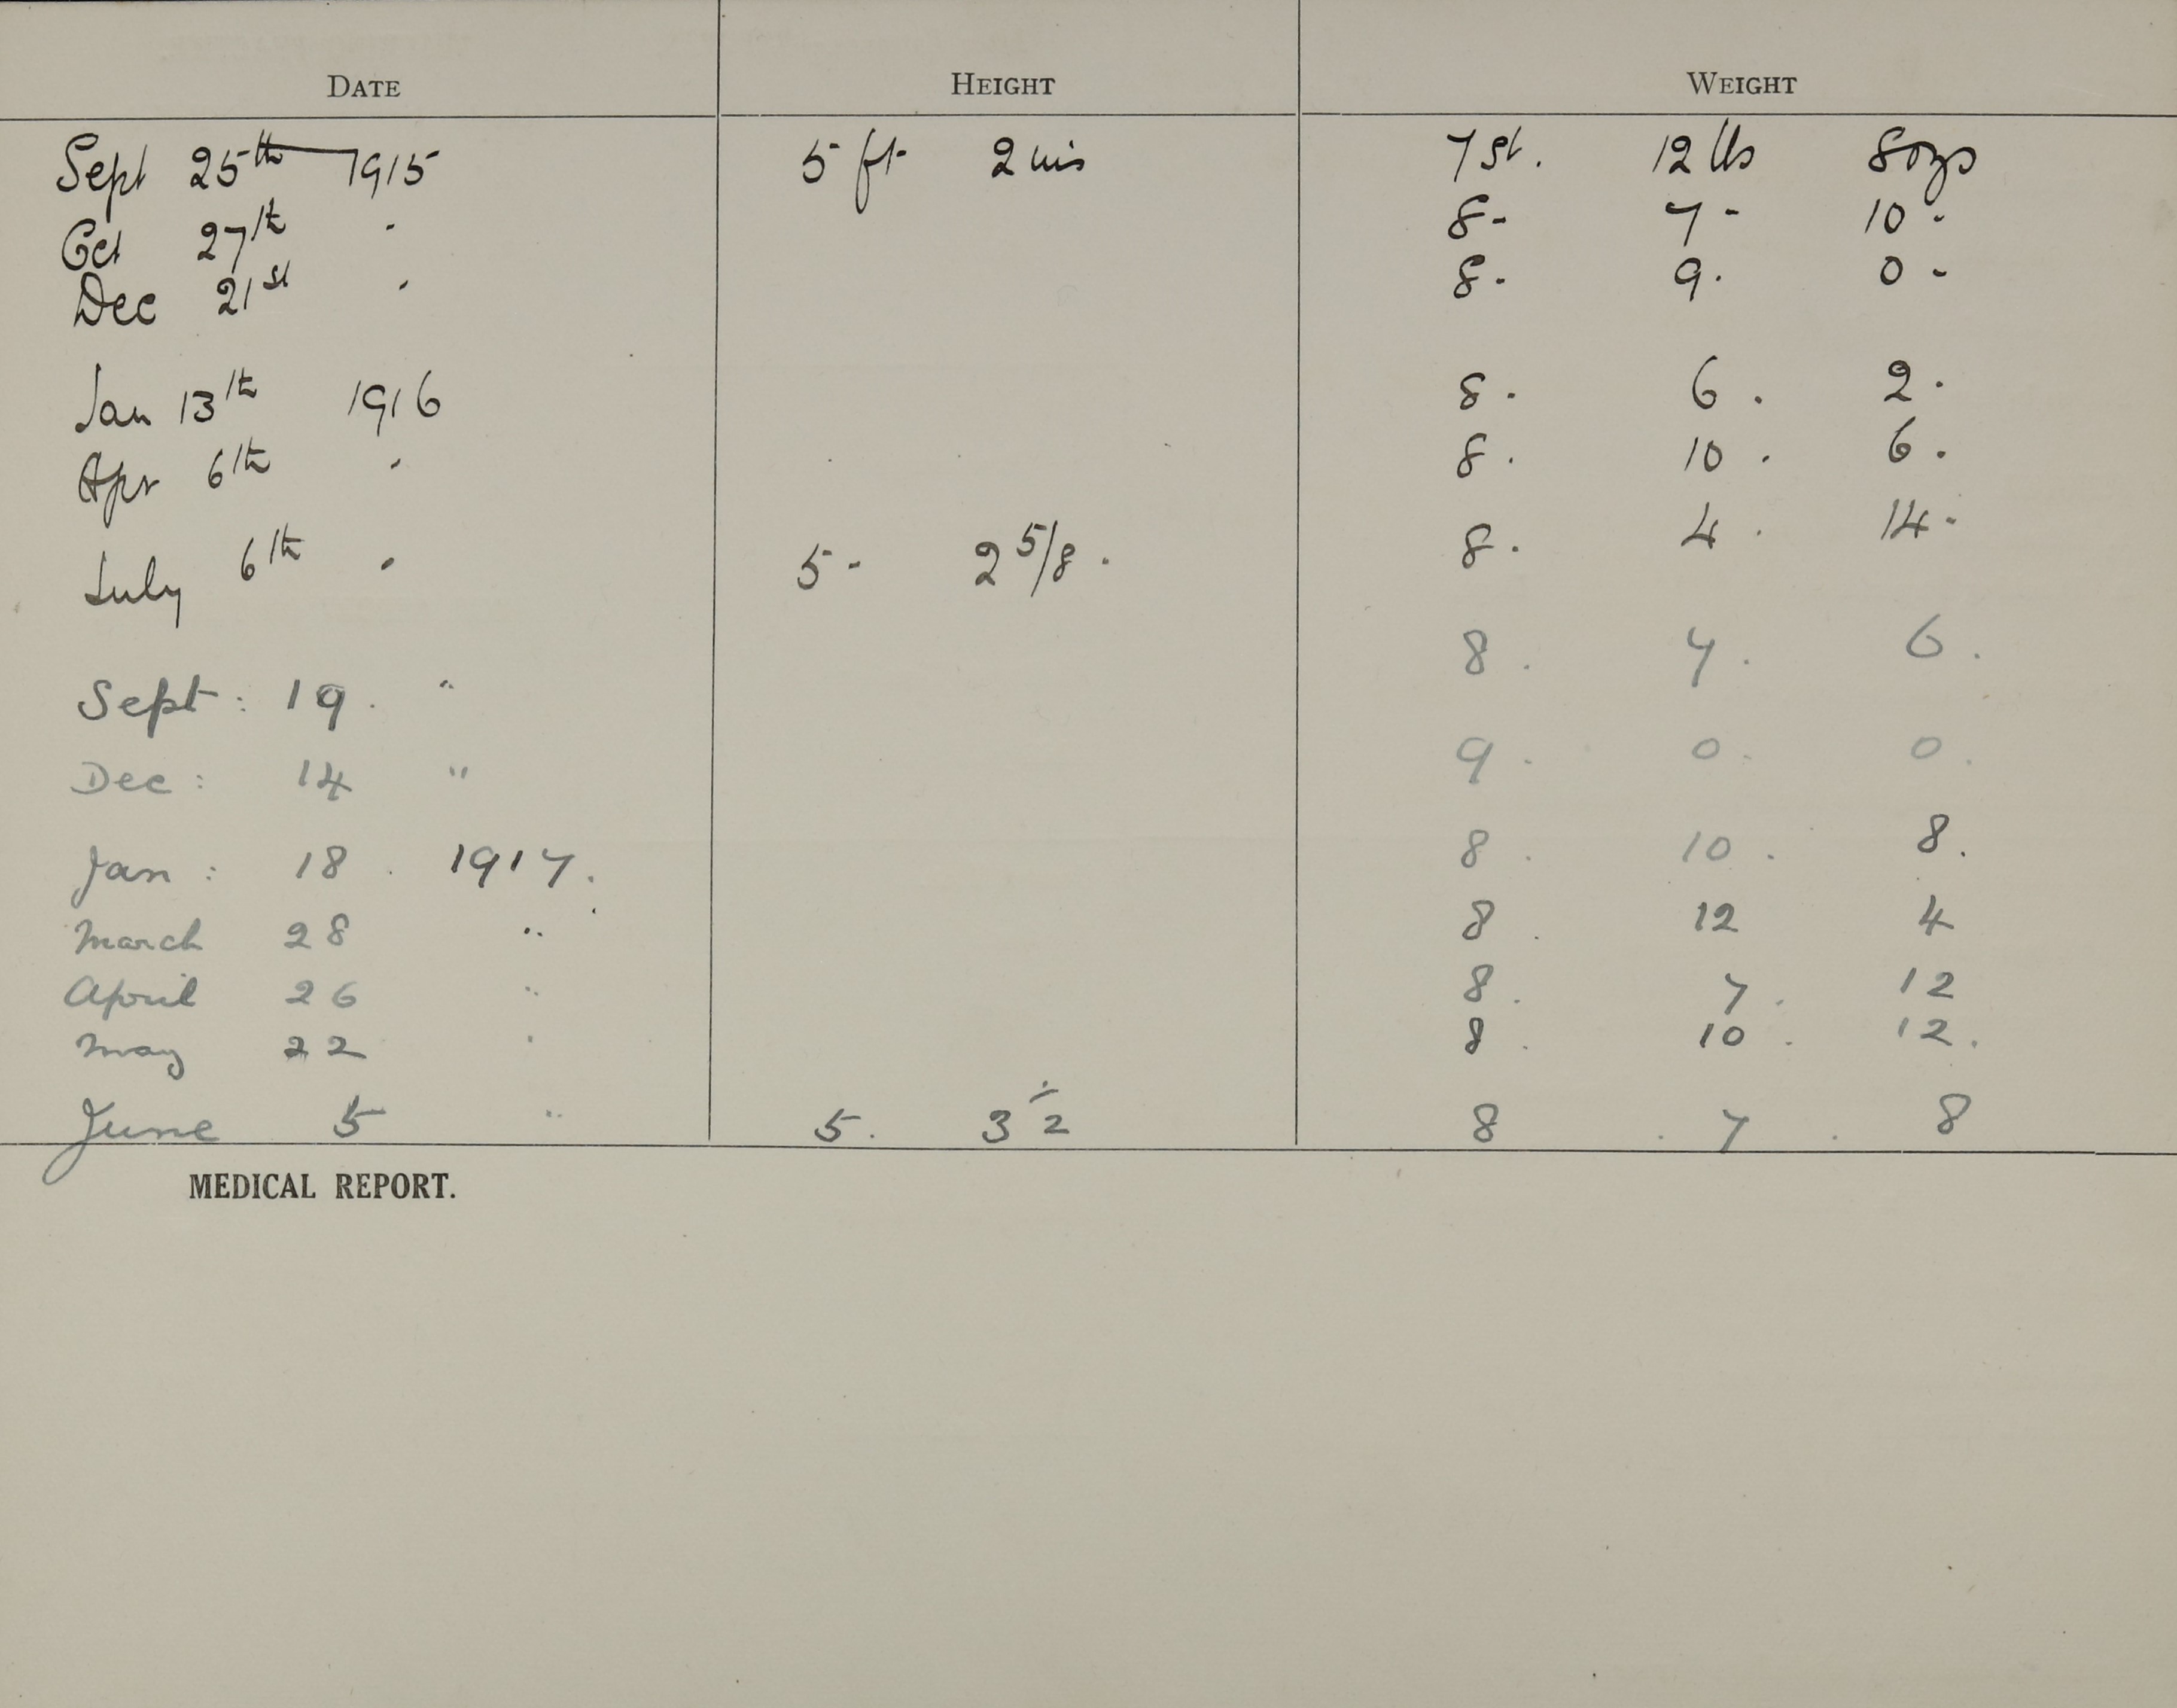 DATE HEIGHT WEIGHT
Sept 25th 1915 5 ft 2 ins 7 st. 12 lbs 8 ozs
Oct 27th " 8 - 7 - 10 -
Dec 21st " 8 - 9 . 0 -
Jan 13th 1916 8 . 6 . 2 .
Apr 6th " 8 . 10 . 6 .
July 6th " 5 - 2 5/8 . 8 . 4 . 14 -
Sept : 19 . " 8 . 7 . 6 .
Dec : 14 " 9 . 0 . 0 .
Jan : 18 . 1917 . 8 . 10 . 8 .
March 28 " 8 . 12 4
April 26 " 8 . 7 . 12
May 22 " 8 . 10 . 12 .
June 5 " 5 . 3 1/2 8 . 7 . 8
MEDICAL REPORT.